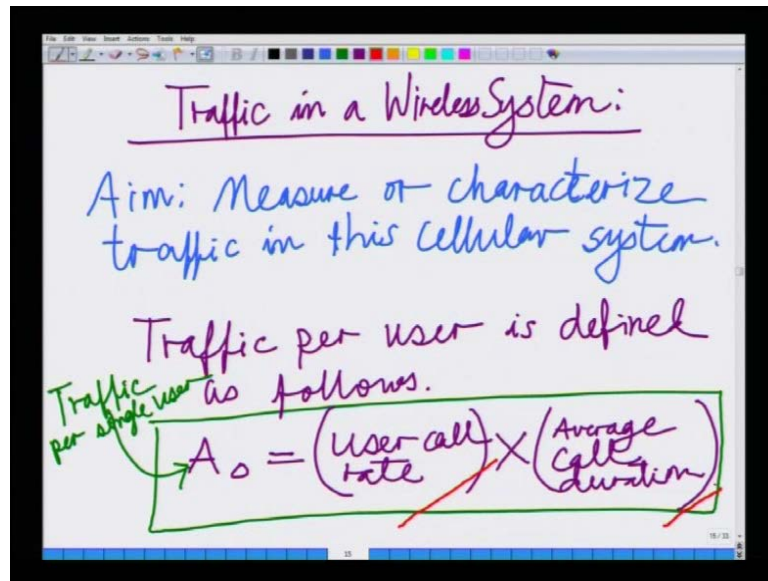 File Edit View Insert Actions Tools Help
Traffic in a Wireless System:
Aim: Measure or characterize
traffic in this cellular system.
Traffic per user is defined
as follows.
Traffic
per single user
A₀ = (User call rate) X (Average Call duration)
15
15/33